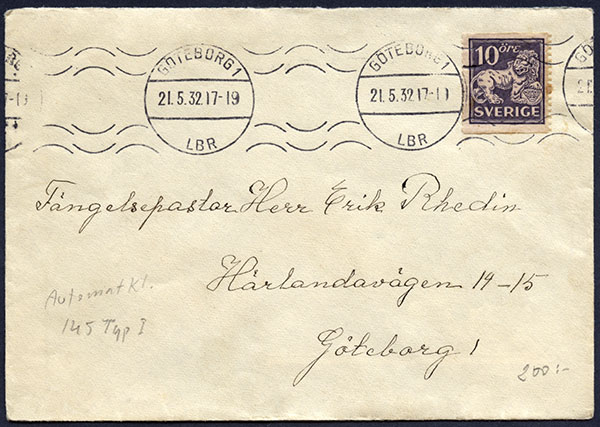 GÖTEBORG 1
21.5.32.17-19
LBR
GÖTEBORG 1
21.5.32.17-1
LBR
10 ÖRE
SVERIGE
Fängelsepastor Herr Erik Rhedin
Härlandavägen 19-15
Göteborg 1
Automatkl.
145 Typ I
200:-